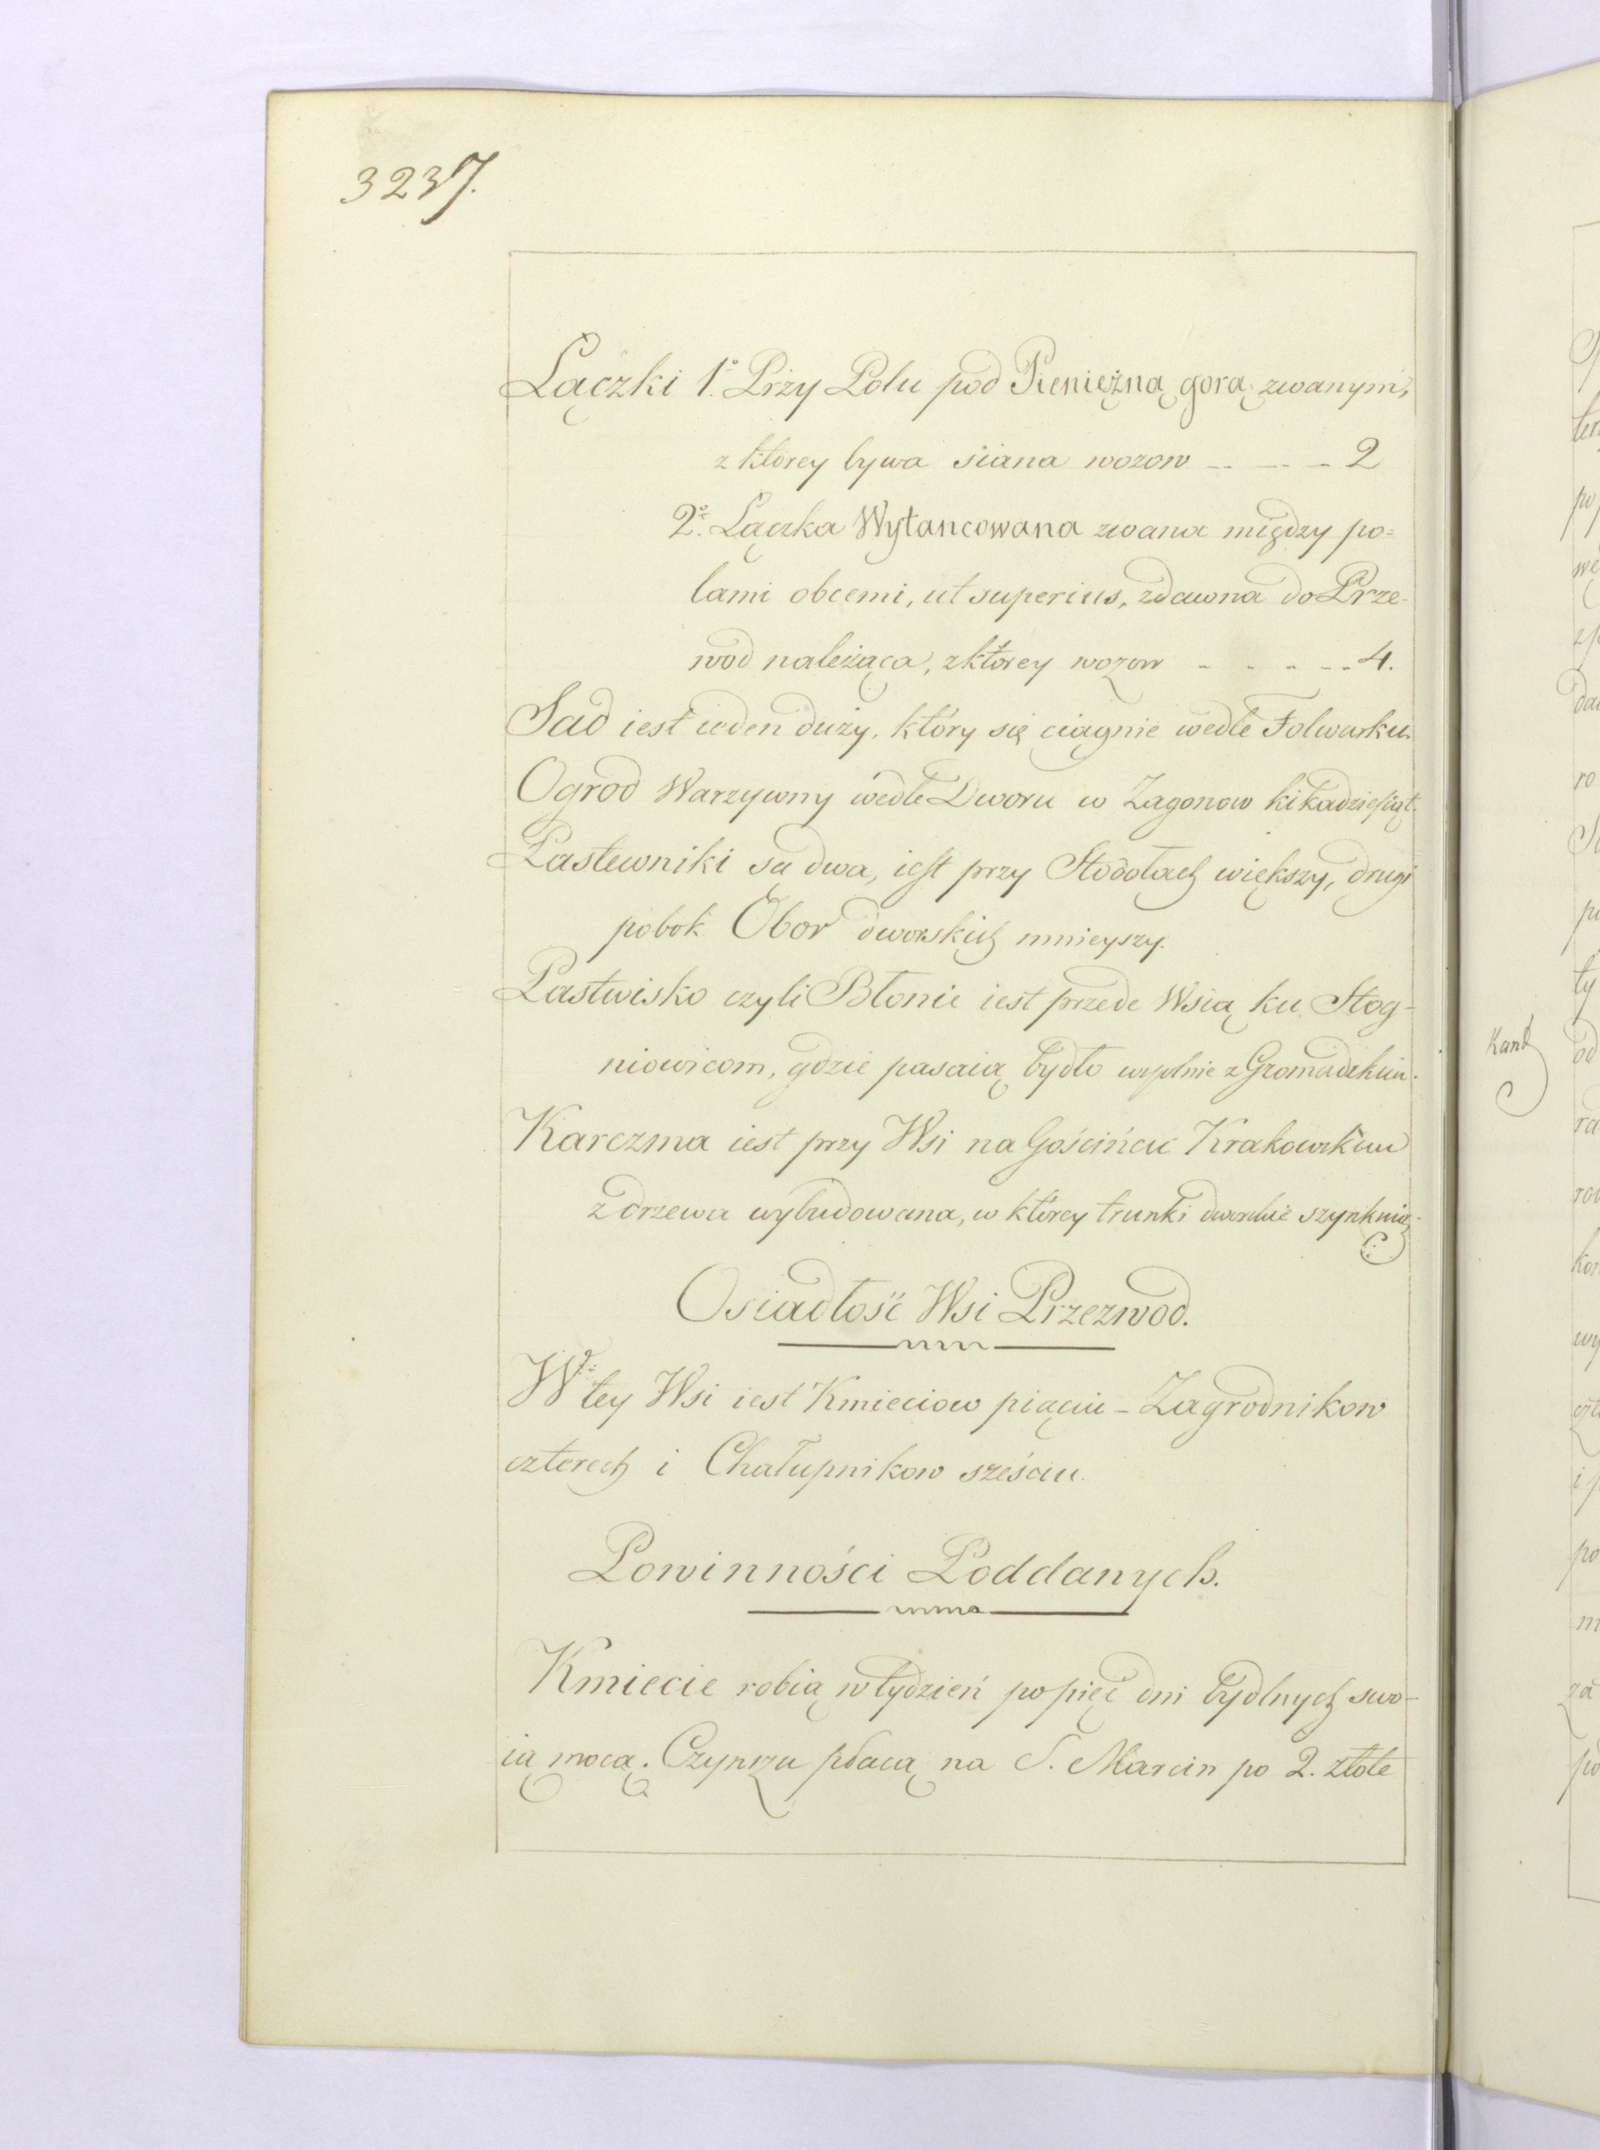 3237.
Łączki 1º. Przy Polu pod Pieniężną gorą zwanym,
z ktorey bywa siana wozow - - - - 2
2º. Łączka Wytancowana zwana między po=
lami obcemi, ut superius, zdawna do Prze-
wod należąca, z ktorey wozow - - - - - 4.
Sad iest ieden duży, który się ciągnie wedle Folwarku.
Ogrod Warzywny wedle Dworu w Zagonow kilkadziesiąt.
Pastewniki są dwa, iest przy Stodołach większy, drugi
pobok Obor dworskich mnieyszy.
Pastwisko czyli Błonie iest przede Wsią ku Stog-
niowicom, gdzie pasaią bydło wspolnie z Gromadzkim.
Karczma iest przy Wsi na Gościńcu Krakowskim
z drzewa wybudowana, w którey trunki dworskie szynkuią.
Osiadłość Wsi Przezwod.
W tey Wsi iest Kmieciow pięciu - Zagrodnikow
czterech i Chałupnikow sześciu.
Powinności Poddanych.
Kmiecie robią w tydzień po pięć dni bydlnych swo-
ią mocą. Czynszu płacą na S. Marcin po 2. złote